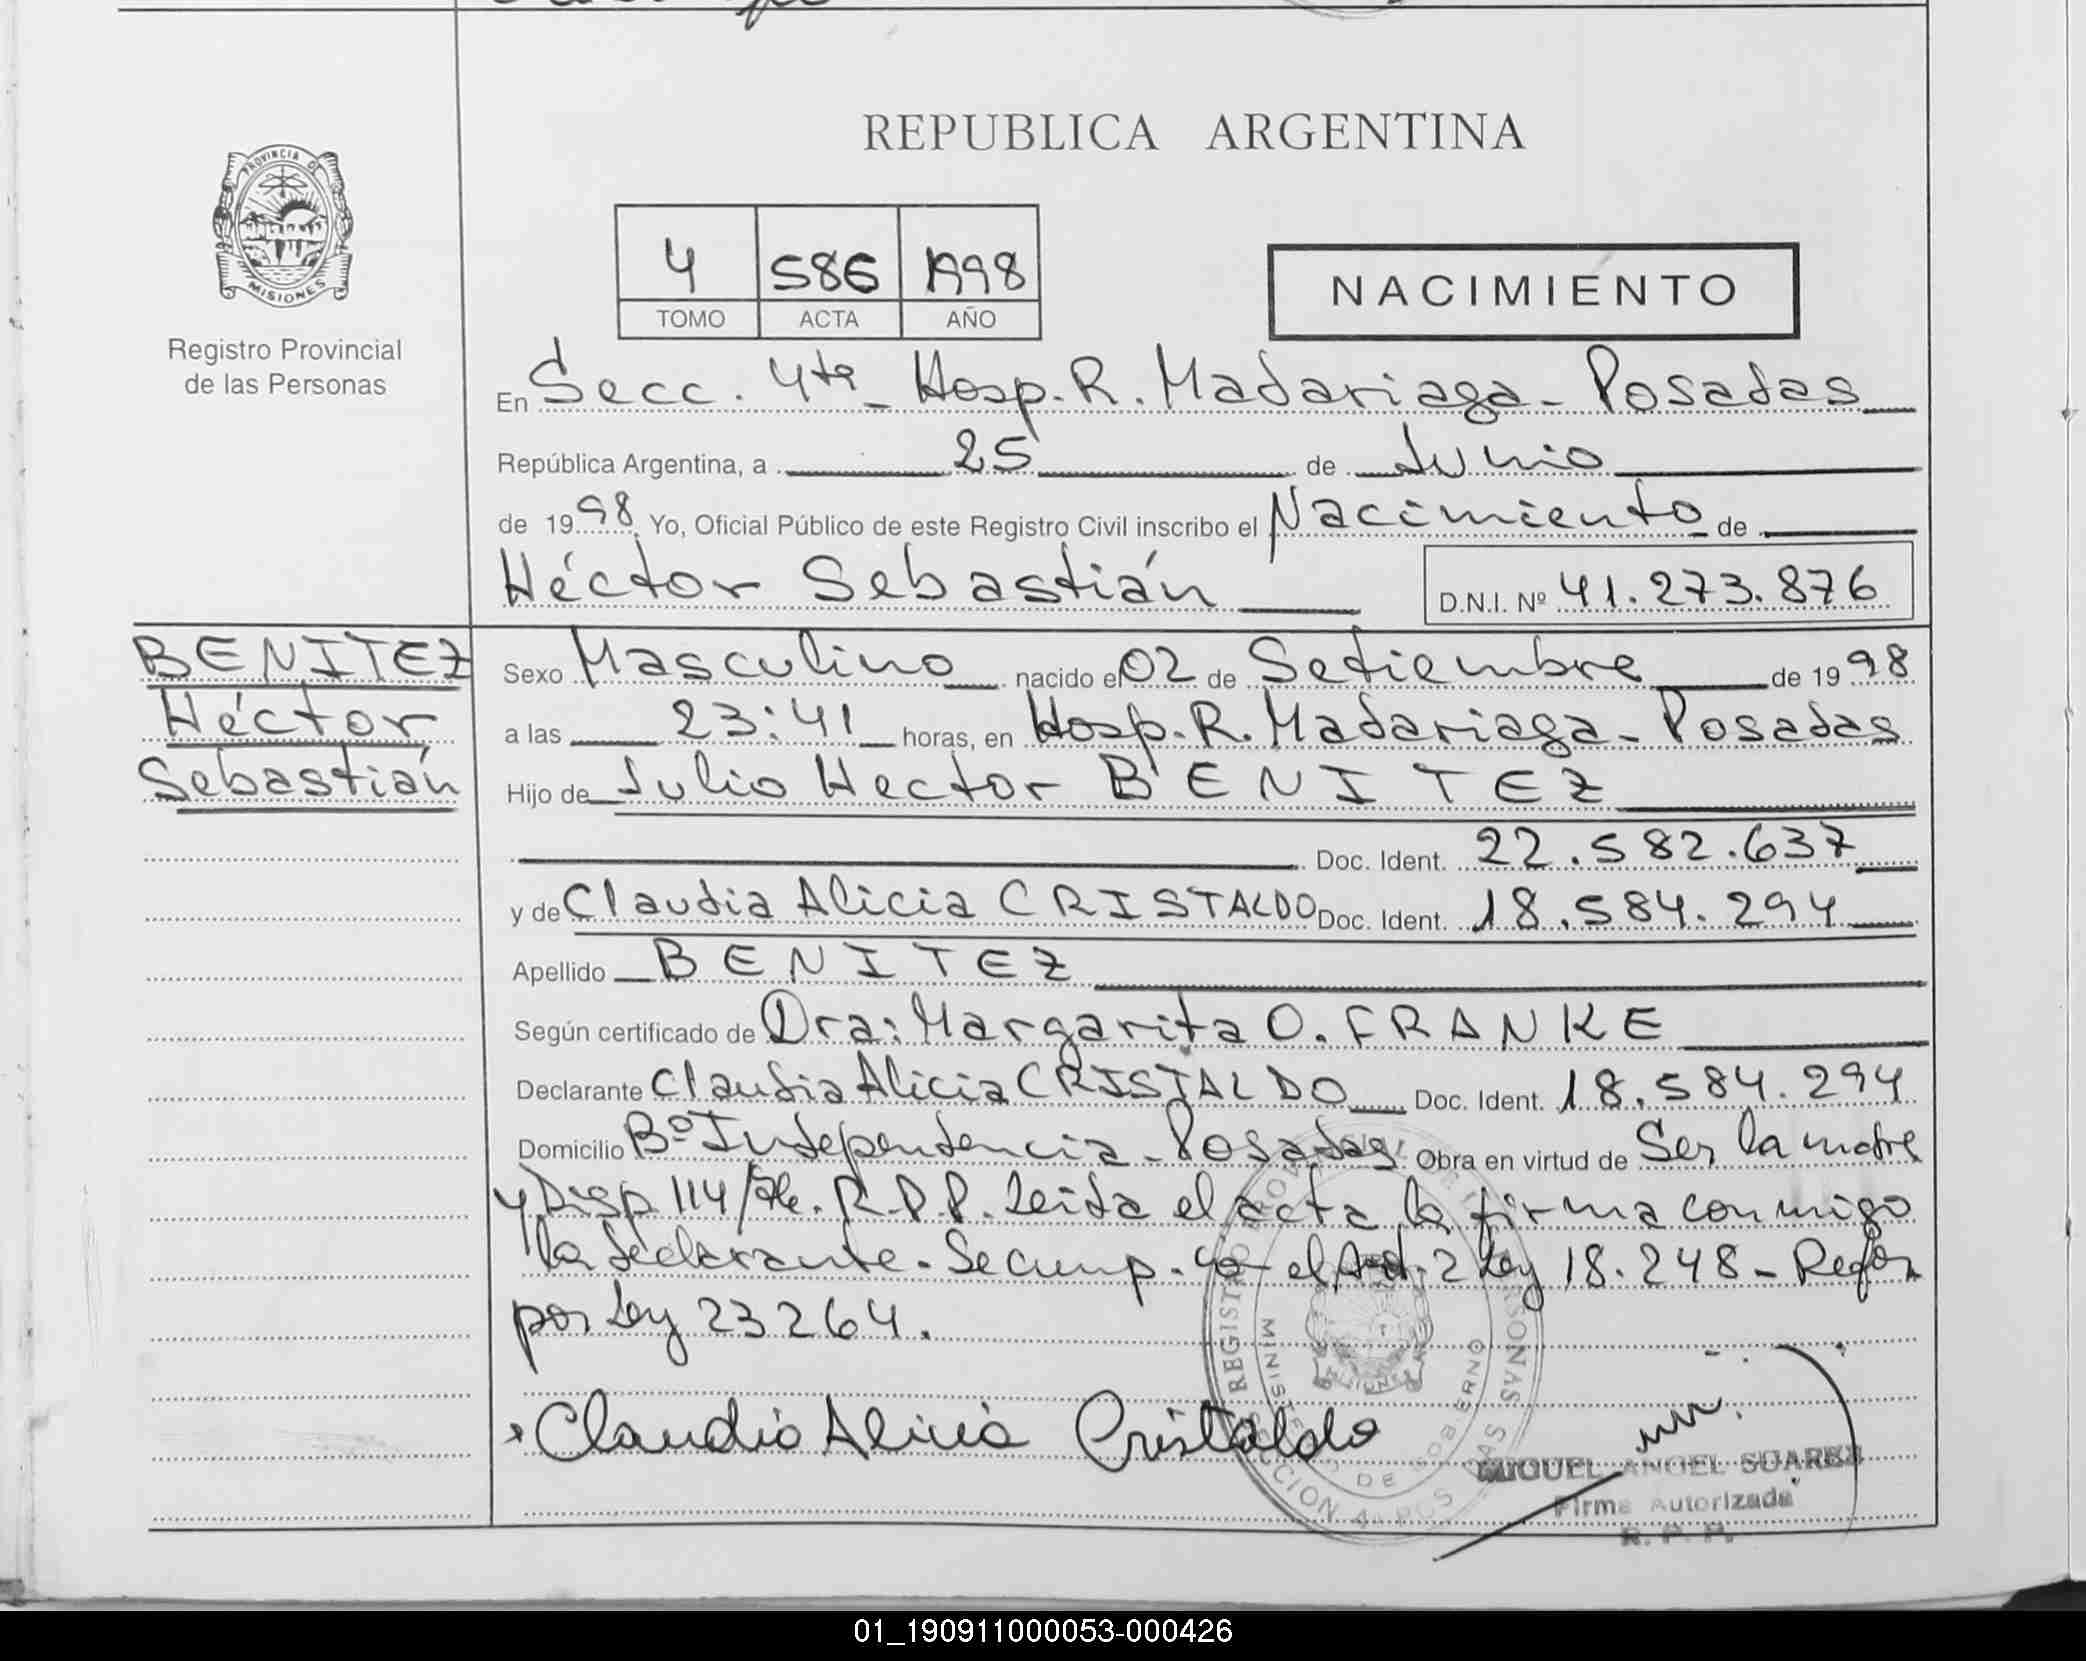 REPUBLICA ARGENTINA
PROVINCIA DE
MISIONES
Registro Provincial
de las Personas
4 586 1998
TOMO ACTA AÑO
NACIMIENTO
En Secc. 4ta_ Hosp. R. Madariaga - Posadas
República Argentina, a 25 de Junio
de 1998. Yo, Oficial Público de este Registro Civil inscribo el Nacimiento de
Héctor Sebastián D.N.I. Nº 41.273.876
BENITEZ
Héctor
Sebastián
Sexo Masculino nacido el 02 de Setiembre de 1998
a las 23:41 horas, en Hosp. R. Madariaga - Posadas
Hijo de Julio Hector BENITEZ
Doc. Ident. 22.582.637
y de Claudia Alicia CRISTALDO Doc. Ident. 18.584.294
Apellido BENITEZ
Según certificado de Dra: Margarita O. FRANKE
Declarante Claudia Alicia CRISTALDO Doc. Ident. 18.584.294
Domicilio Bº Independencia - Posadas Obra en virtud de Ser la madre
y Disp 114/96. R.P.P. Leida el acta la firma conmigo
la declarante. Se cump. el Art. 2 Ley 18.248 - Refor
por Ley 23264.
Claudia Alicia Cristaldo
MIGUEL ANGEL SUAREZ
Firma Autorizada
R. P. P.
REGISTRO PROVINCIAL DE LAS PERSONAS
MINISTERIO DE GOBIERNO
SECCION 4ª PCS
01_190911000053-000426